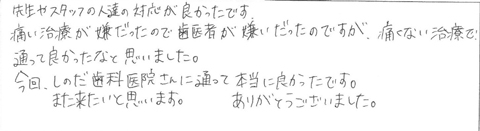 先生やスタッフの人達の対応が良かったです。
痛い治療が嫌だったので歯医者が嫌いだったのですが、痛くない治療で
通って良かったなと思いました。
今回、しのだ歯科医院さんに通って本当に良かったです。
また来たいと思います。 ありがとうございました。